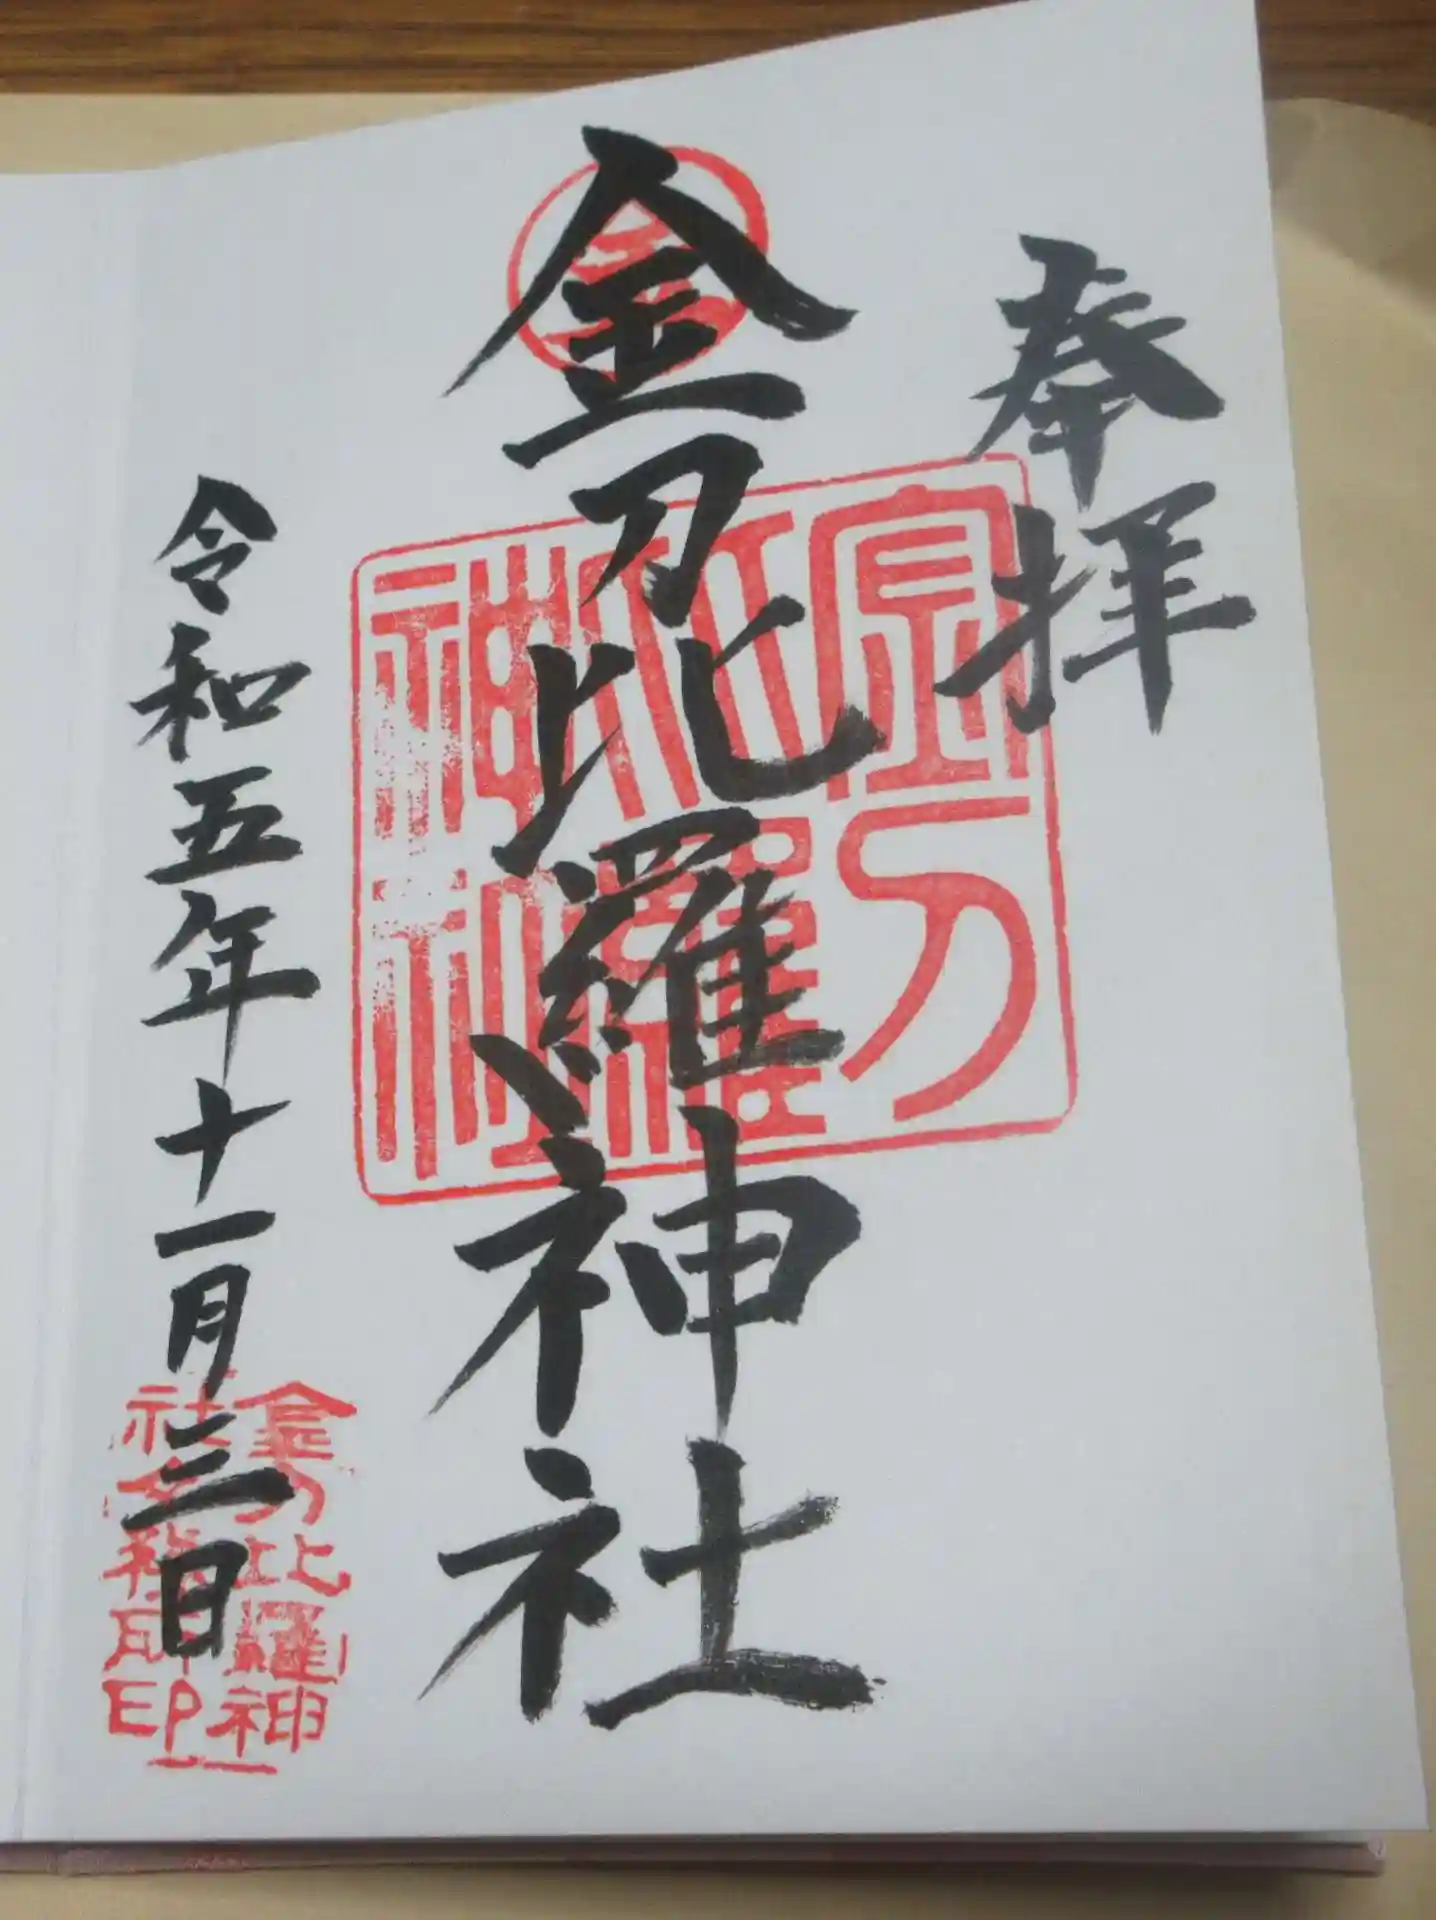 奉拝
金刀比羅神社
金刀比羅神社
令和五年十一月三日
金刀比羅神
社社務所印